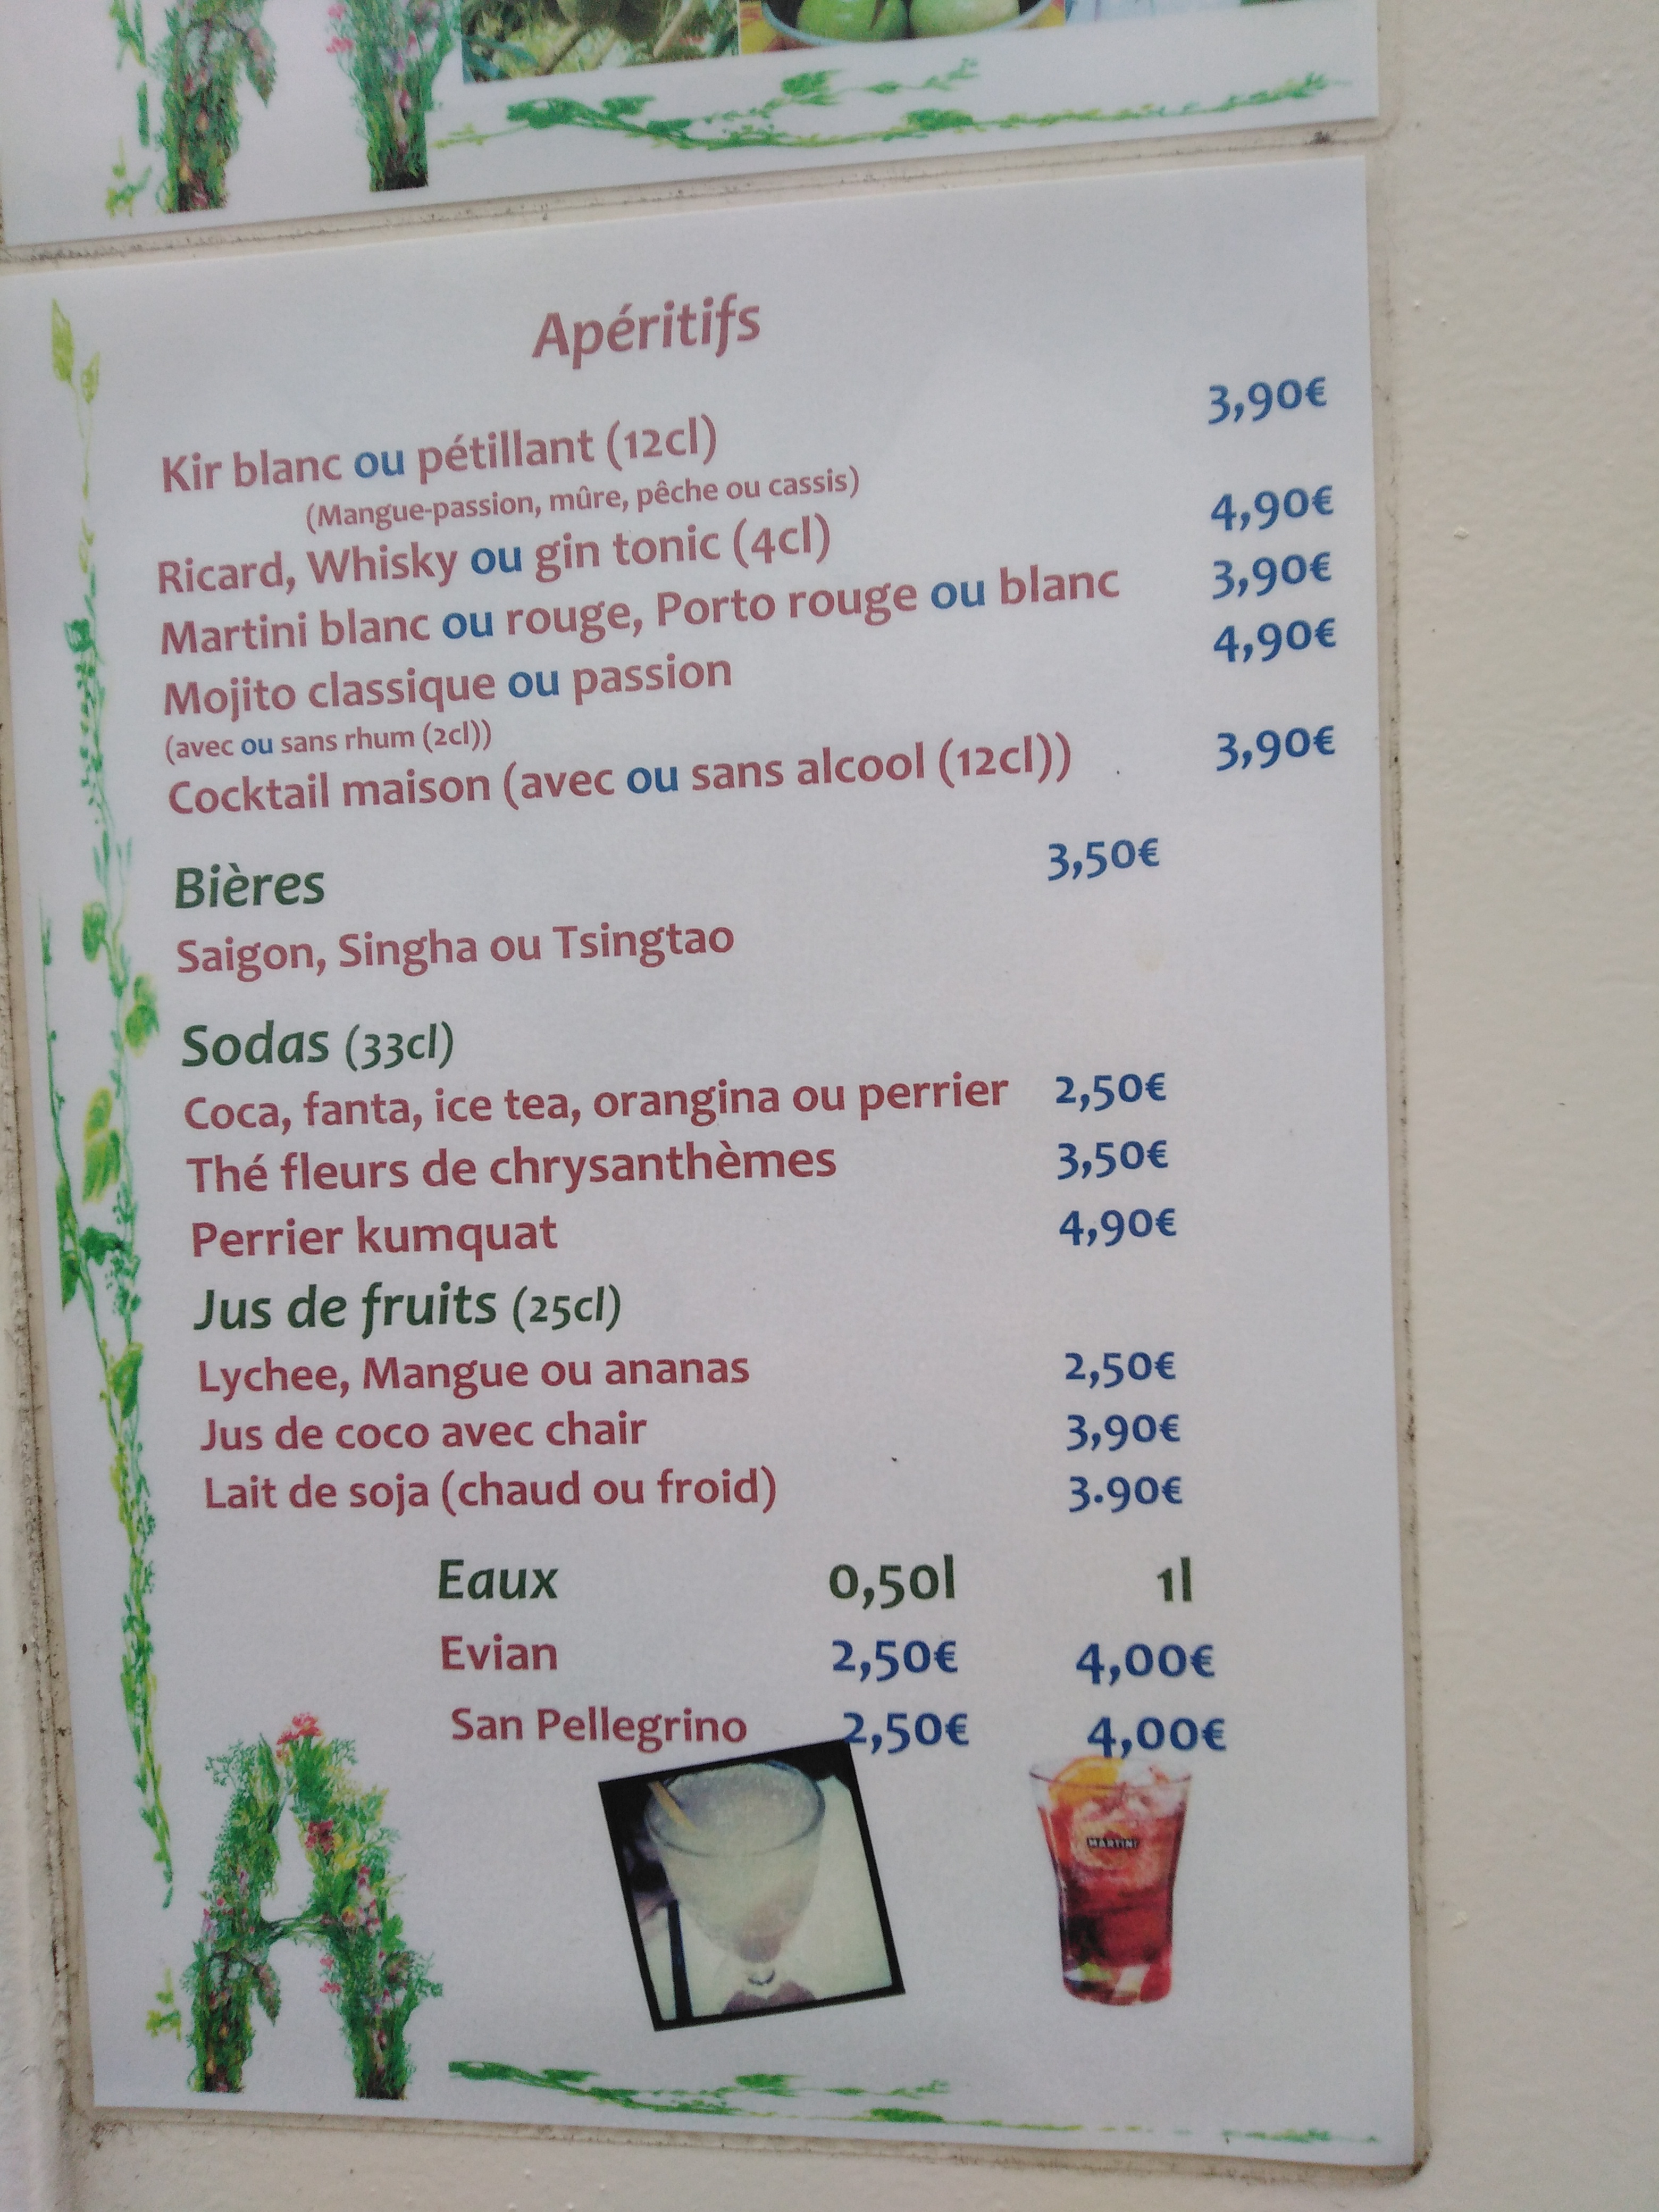 Apéritifs
Kir blanc ou pétillant (12cl) 3,90€
(Mangue-passion, mûre, pêche ou cassis)
Ricard, Whisky ou gin tonic (4cl) 4,90€
Martini blanc ou rouge, Porto rouge ou blanc 3,90€
Mojito classique ou passion 4,90€
(avec ou sans rhum (2cl))
Cocktail maison (avec ou sans alcool (12cl)) 3,90€
Bières 3,50€
Saigon, Singha ou Tsingtao
Sodas (33cl)
Coca, fanta, ice tea, orangina ou perrier 2,50€
Thé fleurs de chrysanthèmes 3,50€
Perrier kumquat 4,90€
Jus de fruits (25cl)
Lychee, Mangue ou ananas 2,50€
Jus de coco avec chair 3,90€
Lait de soja (chaud ou froid) 3.90€
Eaux 0,50l 1l
Evian 2,50€ 4,00€
San Pellegrino 2,50€ 4,00€
MARTINI